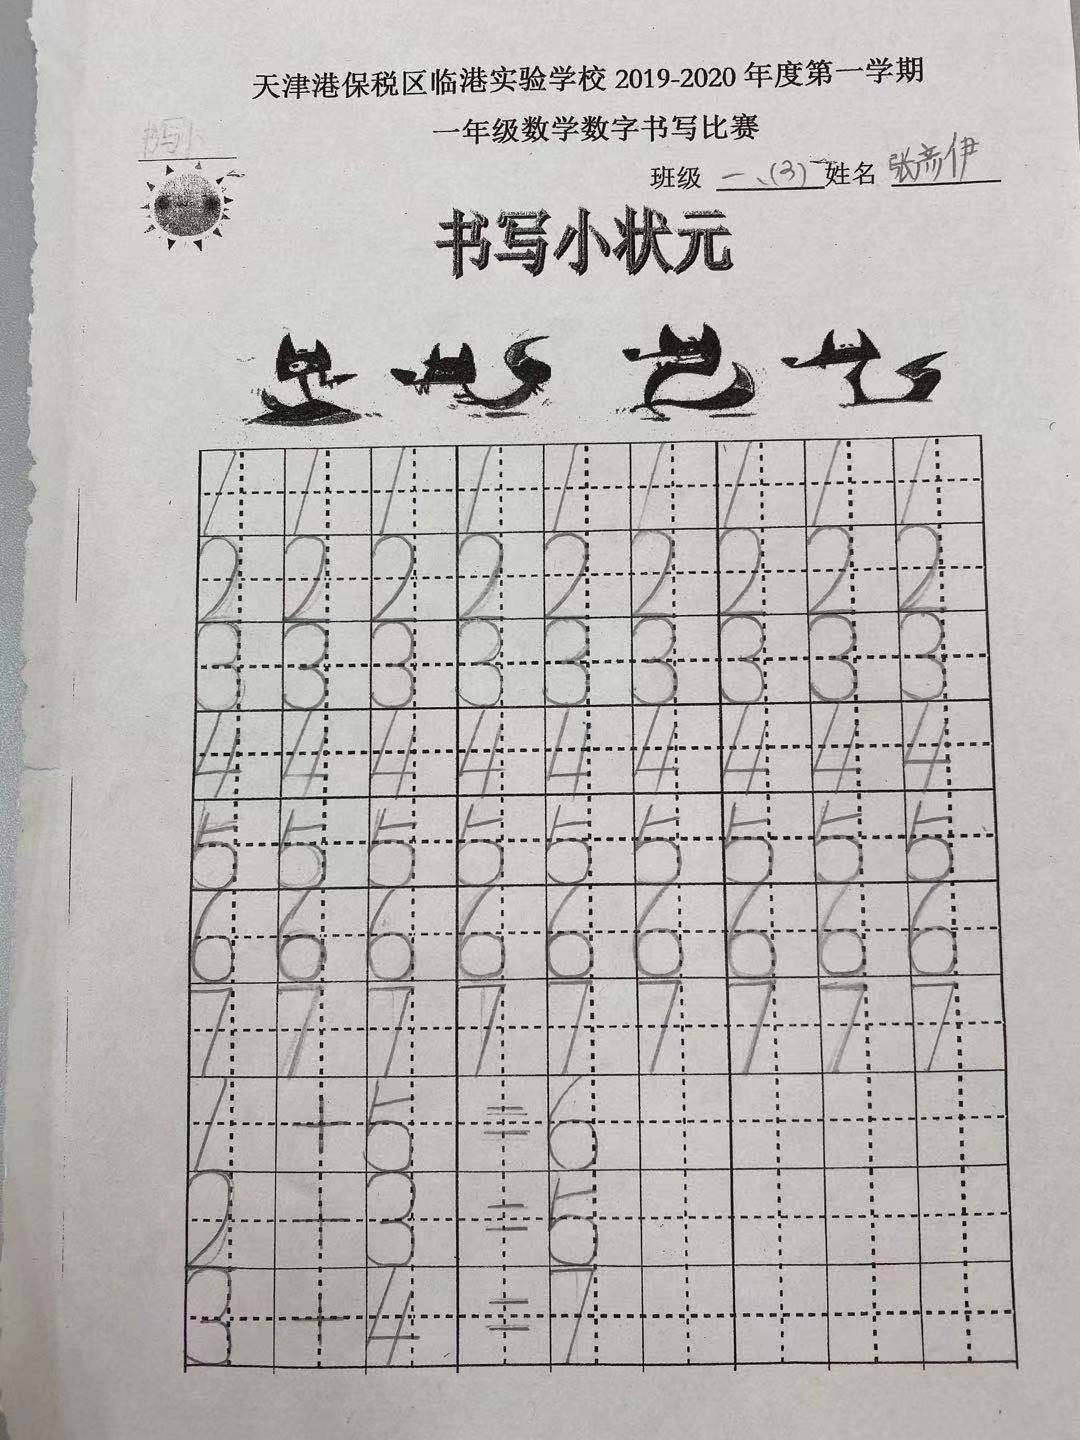 天津港保税区临港实验学校 2019-2020 年度第一学期
一年级数学数字书写比赛
书写小
班级 一、(3) 姓名 张彦伊
书写小状元
1 1 1 1 1 1 1 1 1
2 2 2 2 2 2 2 2 2
3 3 3 3 3 3 3 3 3
4 4 4 4 4 4 4 4 4
5 5 5 5 5 5 5 5 5
6 6 6 6 6 6 6 6 6
7 7 7 7 7 7 7 7 7
1 + 5 = 6
2 + 3 = 5
3 + 4 = 7